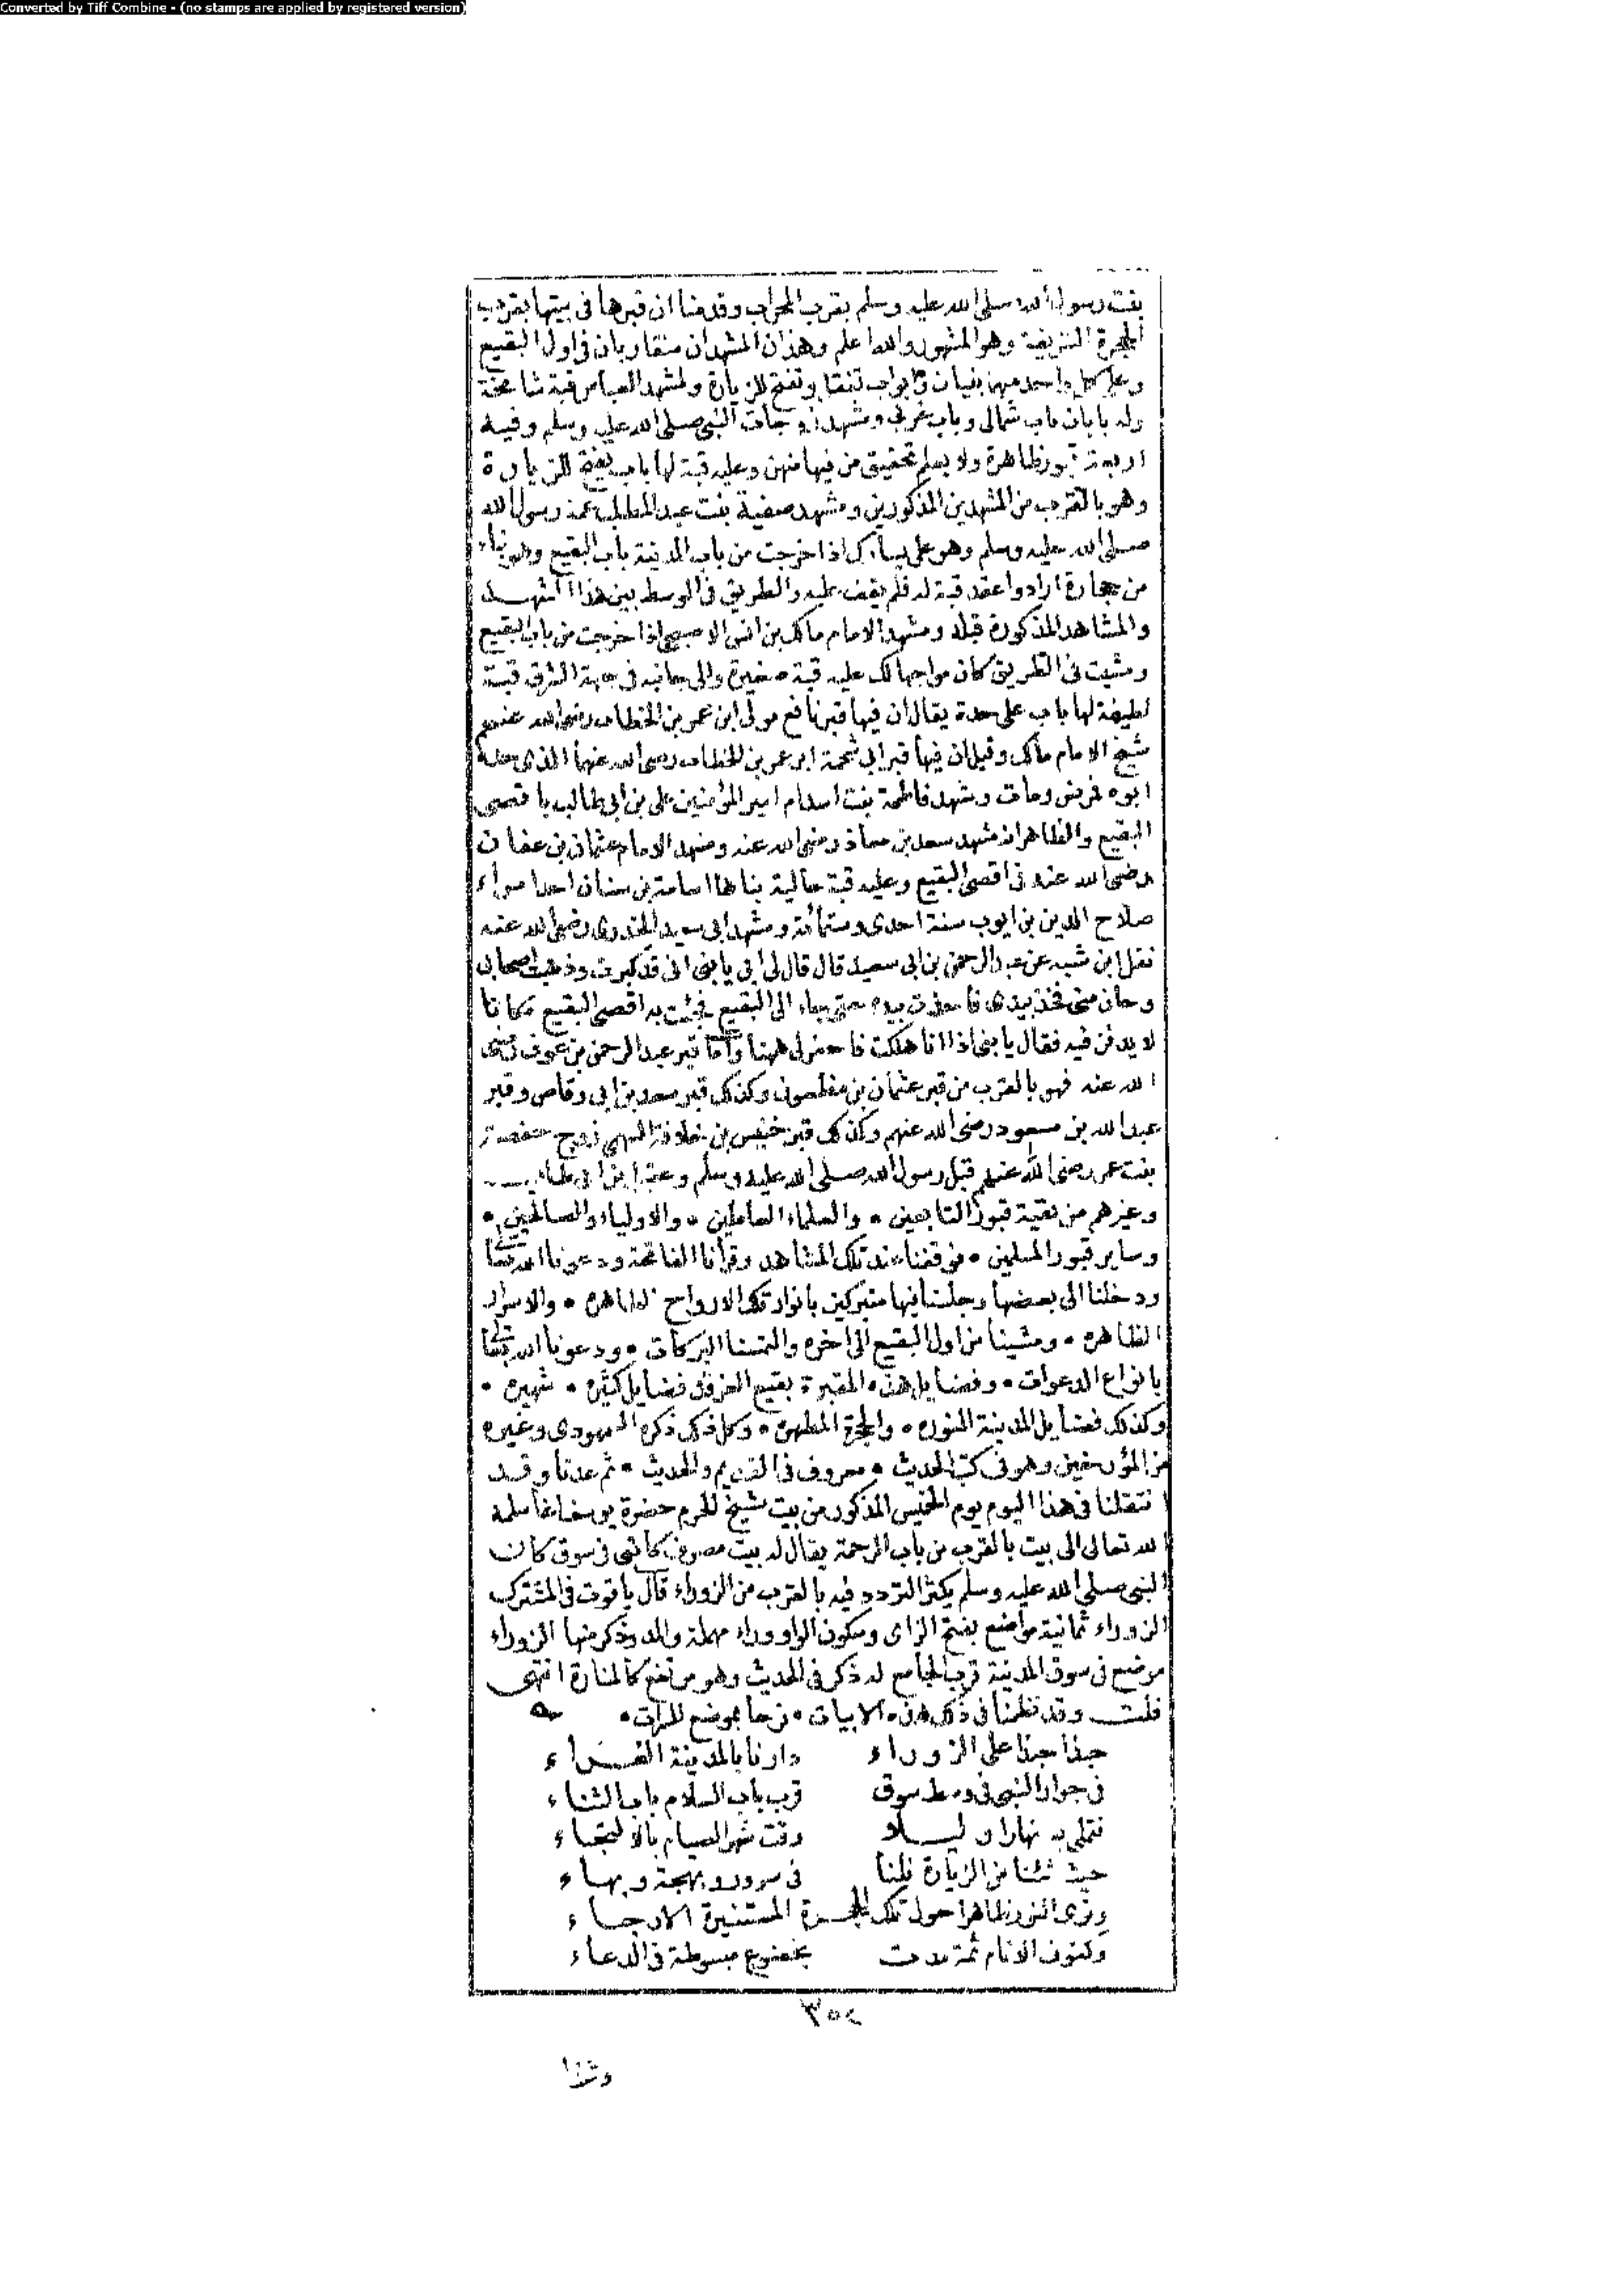 Converted by Tiff Combine - (no stamps are applied by registered version)
بنت رسول الله صلى الله عليه وسلم بقرب المحراب وقدمنا ان قبرها في بيتها بقرب
الحجرة الشريفة وهو المشهور والله اعلم وهذان المشهدان متقاربان في اول البقيع
وعلى كل واحد منهما بنيان وابواب تقفل وتفتح للزيارة ولمشهد العباس قبة شامخة
وله بابان باب شمالى وباب غربى ومشهد زوجات النبى صلى الله عليه وسلم وفيه
اربعة قبور ظاهرة ولا يعلم تحقيق من فيها منهن وعليه قبة لها باب يفتح للزيارة
وهو بالقرب من المشهدين المذكورين ومشهد صفية بنت عبد المطلب عمة رسول الله
صلى الله عليه وسلم وهو على يسارك اذا خرجت من باب المدينة باب البقيع وهو بناء
من حجارة ارادوا عقد قبة له فلم يقف عليه والطريق في الوسط بين هذا المشهد
والمشاهد المذكورة قبله ومشهد الامام مالك بن انس الاصبحى اذا خرجت من باب البقيع
ومشيت في الطريق كان مواجها لك عليه قبة صغيرة والى جانبه في جهة الشرق قبة
لطيفة لها باب على حدة يقال ان فيها قبر نافع مولى ابن عمر بن الخطاب رضى الله عنهم
شيخ الامام مالك وقيل ان فيها قبر ابي شحمة ابن عمر بن الخطاب رضى الله عنهما الذى جلده
ابوه فمرض ومات ومشهد فاطمة بنت اسد ام امير المؤمنين على بن ابى طالب باقصى
البقيع والظاهر انه مشهد سعد بن معاذ رضى الله عنه ومشهد الامام عثمان بن عفان
رضى الله عنه في اقصى البقيع وعليه قبة عالية بناها اسامة بن سنان احد امراء
صلاح الدين بن ايوب سنة احدى وستمائة ومشهد ابى سعيد الخدرى رضى الله عنه
نقل ابن شبه عن عبد الرحمن بن ابى سعيد قال قال لى ابى يا بنى انى قد كبرت وذهبت اصحابى
وحان منى فخذ بيدى فاخذت بيده حتى جاء الى البقيع فجئت به اقصى البقيع مكانا
لا يدفن فيه فقال يا بنى اذا انا هلكت فاحفر لى ههنا واما قبر عبد الرحمن بن عوف رضى
الله عنه فهو بالقرب من قبر عثمان بن مظعون وكذلك قبر سعد بن ابى وقاص وقبر
عبد الله بن مسعود رضى الله عنهم وكذلك قبر خنيس بن حذافة السهمى زوج حفصة
بنت عمر رضى الله عنهم قبل رسول الله صلى الله عليه وسلم وعقيل بن ابى طالب
وغيرهم من بقية قبور التابعين • والعلماء العاملين • والاولياء والصالحين •
وساير قبور المسلمين • فوقفنا عند تلك المشاهد وقرأنا الفاتحة ودعونا الله تعالى
ودخلنا الى بعضها وجلسنا فيها متبركين بانوار تلك الارواح الطاهره • والاسرار
الظاهره • ومشينا من اول البقيع الى اخره والتمسنا البركات • ودعونا الله تعالى
بانواع الدعوات • وفضايل هذه المقبرة بقيع الغرقد فضايل كثيره • شهيره •
وكذلك فضايل المدينة المنوره • والحجرة المطهره • وكل ذلك ذكره السمهودى وغيره
من المؤرخين وهو في كتب الحديث • معروف في القديم والحديث • ثم عدنا وقد
انتقلنا في هذا اليوم يوم الخميس المذكور من بيت شيخ الحرم حضرة يوسف اغا سلمه
الله تعالى الى بيت بالقرب من باب الرحمة يقال له بيت مصرف كاتبى في سوق كان
النبى صلى الله عليه وسلم يكثر التردد فيه بالقرب من الزوراء قال ياقوت في المشترك
الزوراء ثمانية مواضع بفتح الزاى وسكون الواو وراء مهملة والمد وذكر منها الزوراء
موضع في سوق المدينة قرب الجامع له ذكر في الحديث وهو مرتفع كالمنارة انتهى
قلت وقد نظمنا في ذلك هذه الابيات • فرحا بموضع المبرات •
حبذا حبذا على الزوراء دارنا بالمدينة الغراء
في جوار النبى في وسط سوق قرب باب السلام باب الثناء
نتملى به نهارا وليلا وقت شهر الصيام بالالتجاء
حيث شئنا من الزيارة فلنا في سرور وبهجة وبهاء
ونرى النور ظاهرا حول تلك الحجرة المستنيرة الارجاء
وكفوف الانام ثمة مدت بخضوع مبسوطة في الدعاء
٣٥٢
وشذا